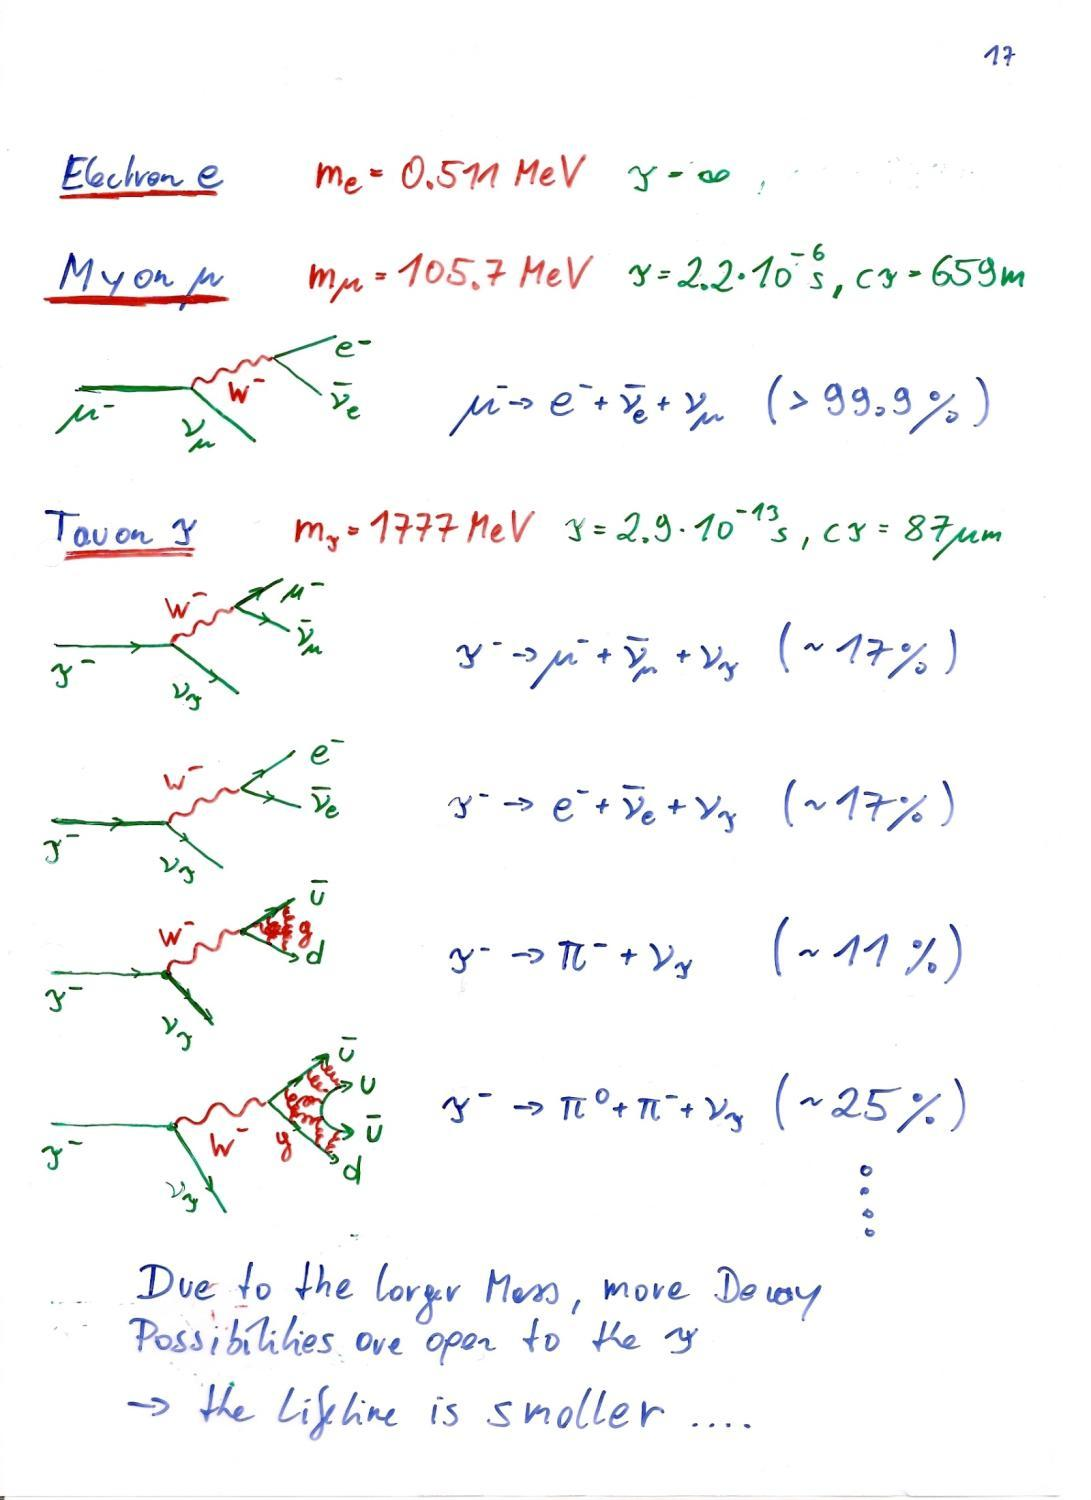 17
Electron e m_e = 0.511 MeV τ = ∞
Myon μ m_μ = 105.7 MeV τ = 2.2·10⁻⁶ s, cτ = 659m
μ⁻ ν_μ W⁻ e⁻ ν̄_e
μ⁻ → e⁻ + ν̄_e + ν_μ (> 99.9%)
Tauon τ m_τ = 1777 MeV τ = 2.9·10⁻¹³ s, cτ = 87μm
τ⁻ ν_τ W⁻ μ⁻ ν̄_μ
τ⁻ → μ⁻ + ν̄_μ + ν_τ (~17%)
τ⁻ ν_τ W⁻ e⁻ ν̄_e
τ⁻ → e⁻ + ν̄_e + ν_τ (~17%)
τ⁻ ν_τ W⁻ g ū d
τ⁻ → π⁻ + ν_τ (~11%)
τ⁻ ν_τ W⁻ g ū u ū d
τ⁻ → π⁰ + π⁻ + ν_τ (~25%)
Due to the larger Mass, more Decay
Possibilities are open to the τ
→ the Lifetime is smaller ....